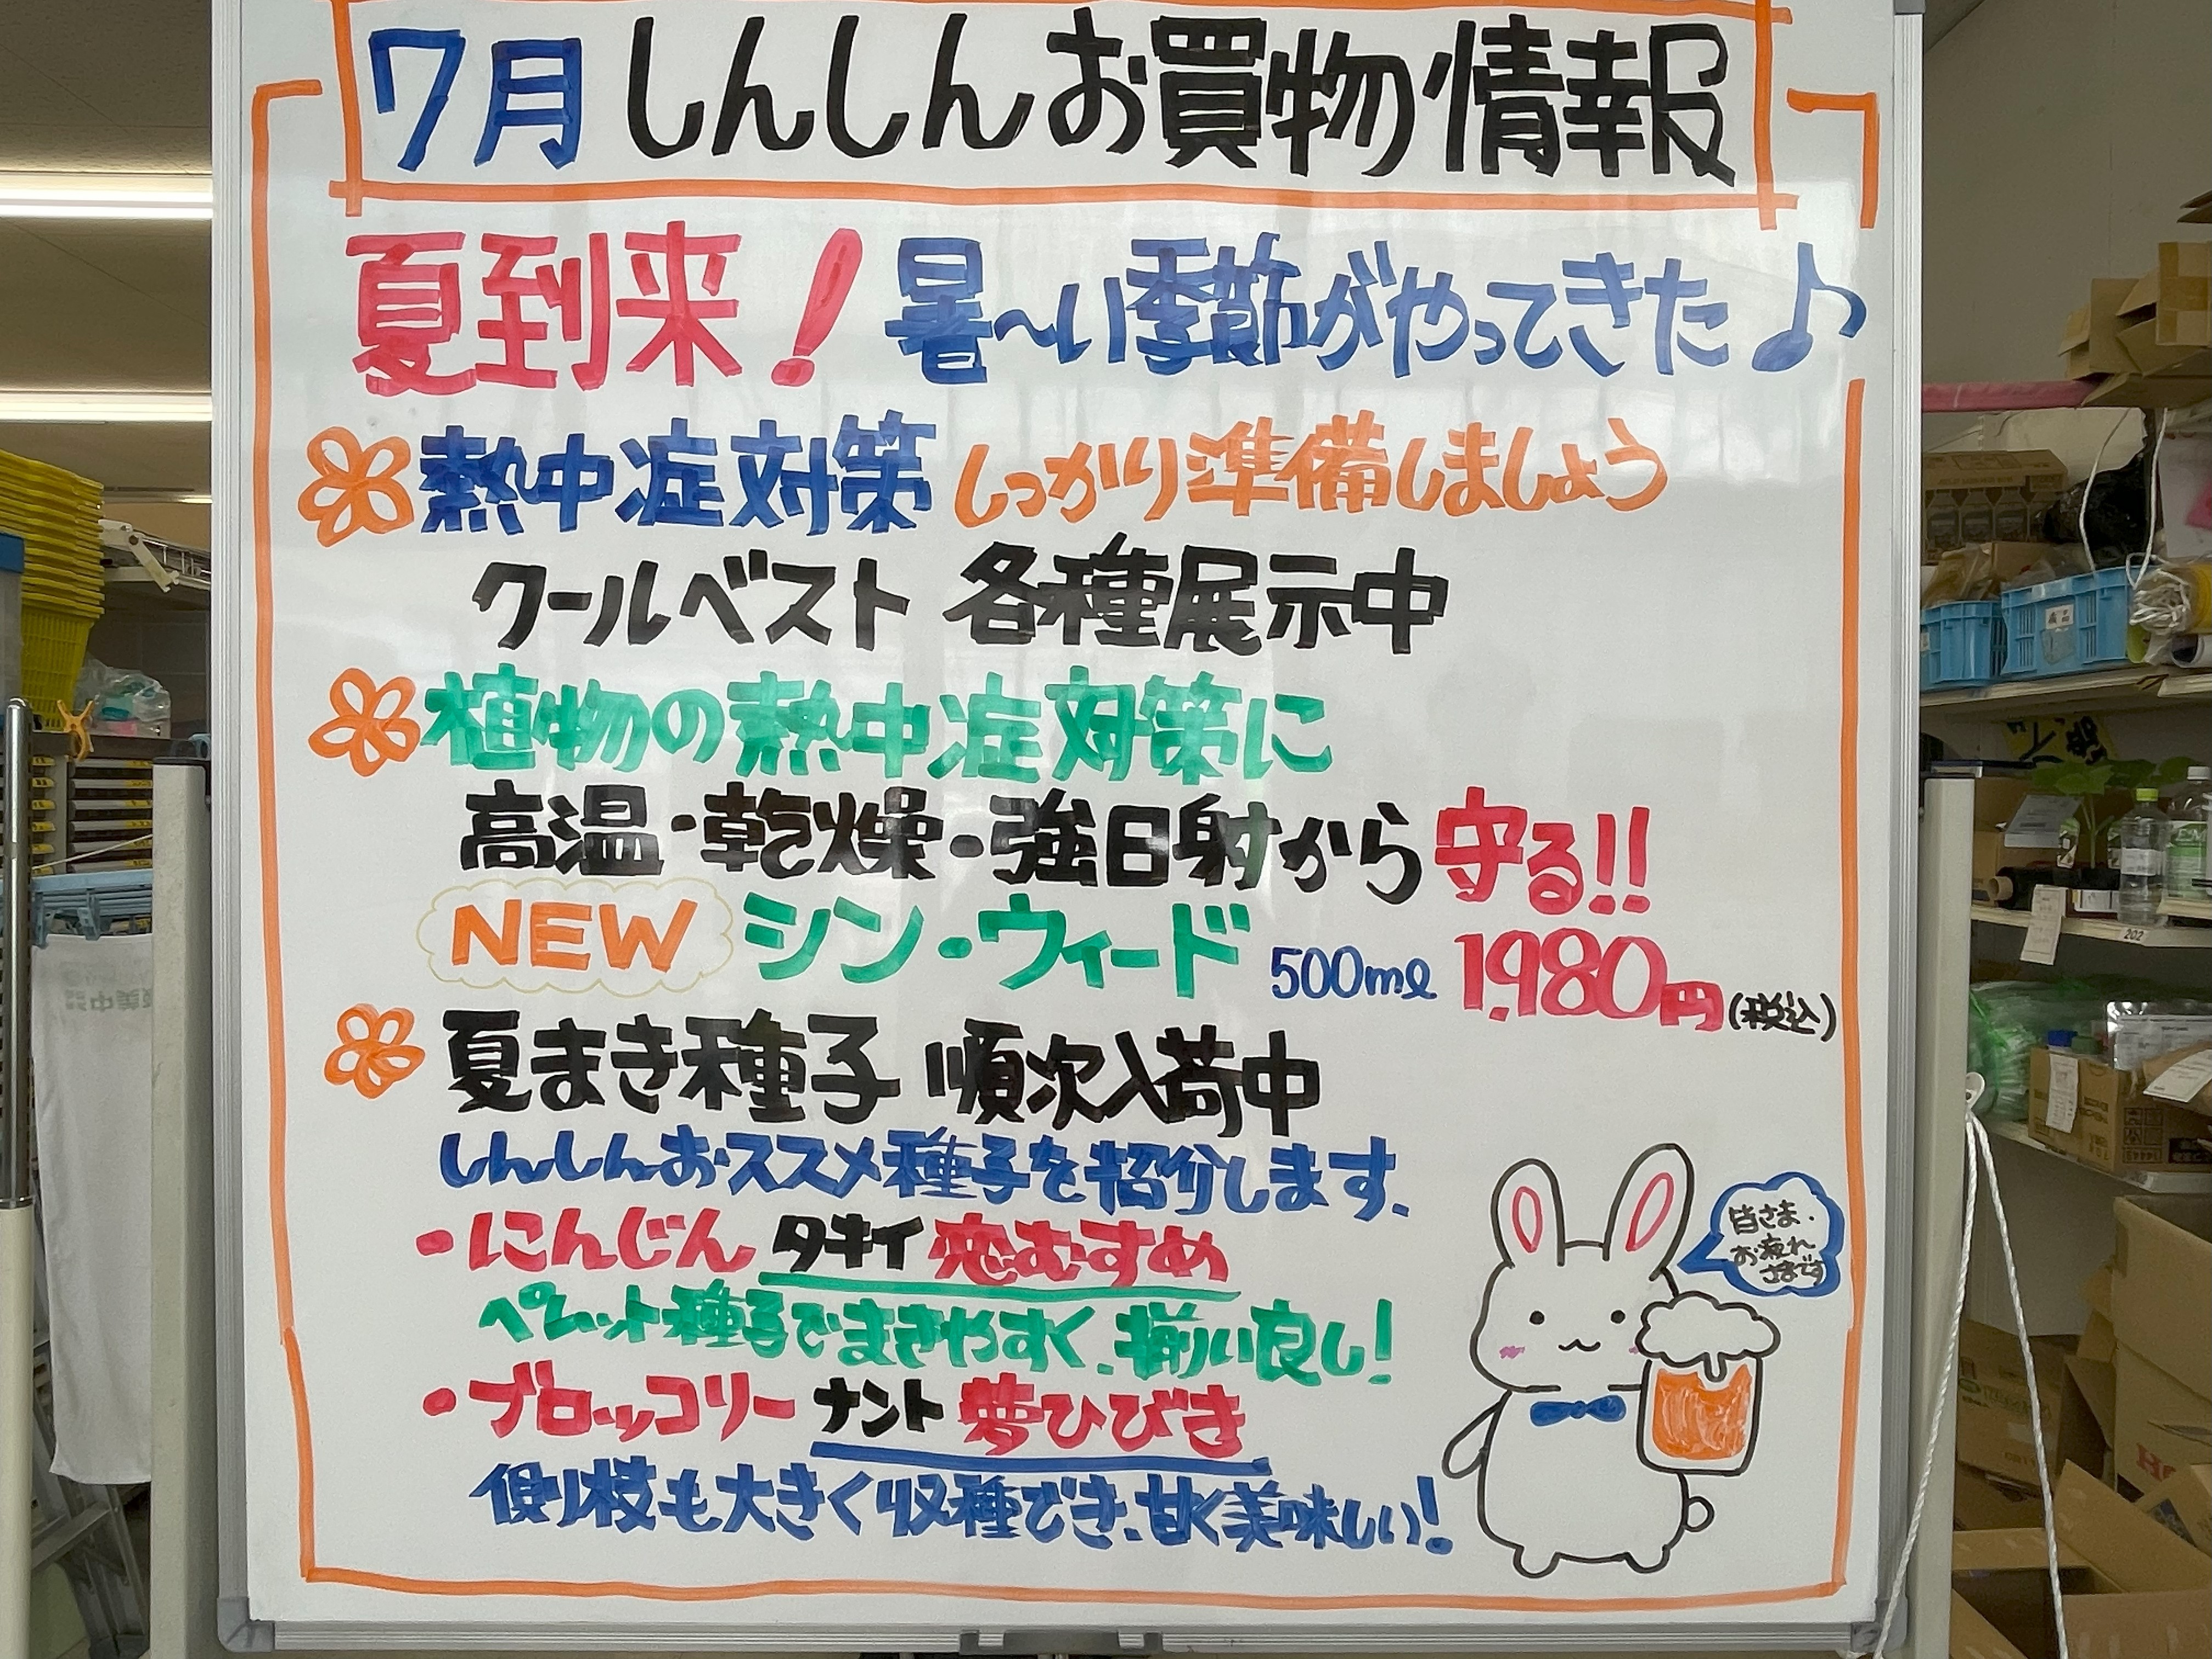 7月 しんしんお買物情報
夏到来！ 暑〜い季節がやってきた♪
熱中症対策 しっかり準備しましょう
クールベスト 各種展示中
植物の熱中症対策に
高温・乾燥・強日射から守る!!
NEW シン・ウィード 500ml 1,980円(税込)
夏まき種子 順次入荷中
しんしんおススメ種子を紹介します。
・にんじん タキイ 恋むすめ
ペレット種子でまきやすく、揃い良し!
・ブロッコリー ナント 夢ひびき
側枝も大きく収種でき、甘く美味しい!
皆さま、
お疲れ
さまです
202